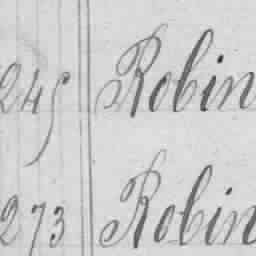 245 Robin
273 Robin